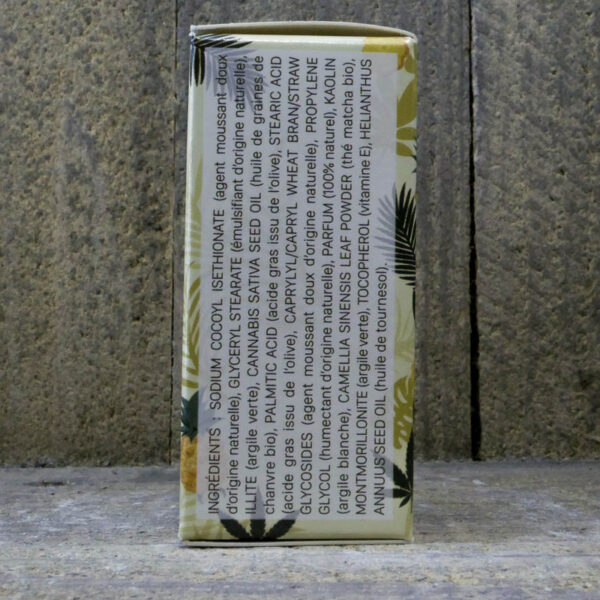 INGRÉDIENTS : SODIUM COCOYL ISETHIONATE (agent moussant doux
d'origine naturelle), GLYCERYL STEARATE (émulsifiant d'origine naturelle),
ILLITE (argile verte), CANNABIS SATIVA SEED OIL (huile de graines de
chanvre bio), PALMITIC ACID (acide gras issu de l'olive), STEARIC ACID
(acide gras issu de l'olive), CAPRYLYL/CAPRYL WHEAT BRAN/STRAW
GLYCOSIDES (agent moussant doux d'origine naturelle), PROPYLENE
GLYCOL (humectant d'origine naturelle), PARFUM (100% naturel), KAOLIN
(argile blanche), CAMELLIA SINENSIS LEAF POWDER (thé matcha bio),
MONTMORILLONITE (argile verte), TOCOPHEROL (vitamine E), HELIANTHUS
ANNUUS SEED OIL (huile de tournesol).